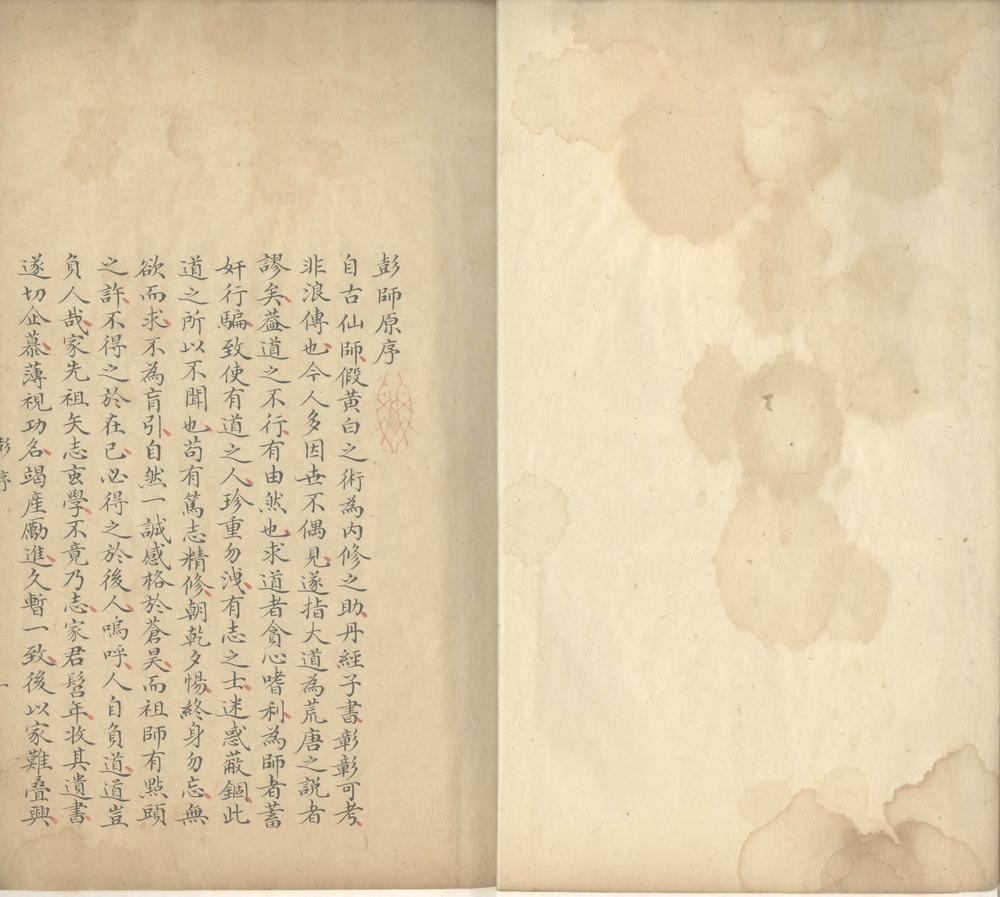 彭師原序
自古仙師假黃白之術為內修之助丹經子書彰彰可考
非浪傳也今人多因世不偶見遂指大道為荒唐之説者
謬矣葢道之不行有由然也求道者貪心嗜利為師者蓄
奸行騙致使有道之人珍重勿洩有志之士迷惑蔽錮此
道之所以不聞也茍有篤志精修朝乾夕惕終身勿忘無
欲而求不為肓引自然一誠感格於蒼昊而祖師有點頭
之許不得之於在己必得之於後人嗚呼人自負道道豈
負人哉家先祖矢志玄學不竟乃志家君髫年收其遺書
遂切企慕薄視功名竭產勵進久暫一致後以家難疊興
彭序
一